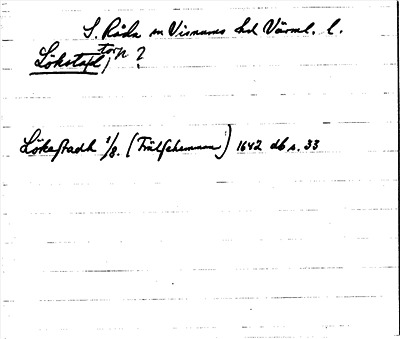 S. Råda sn Visnums hd Värml. l.
Lökstad, torp ?
Lökestadh 1/8. (Frälsehemman) 1642 db s. 33